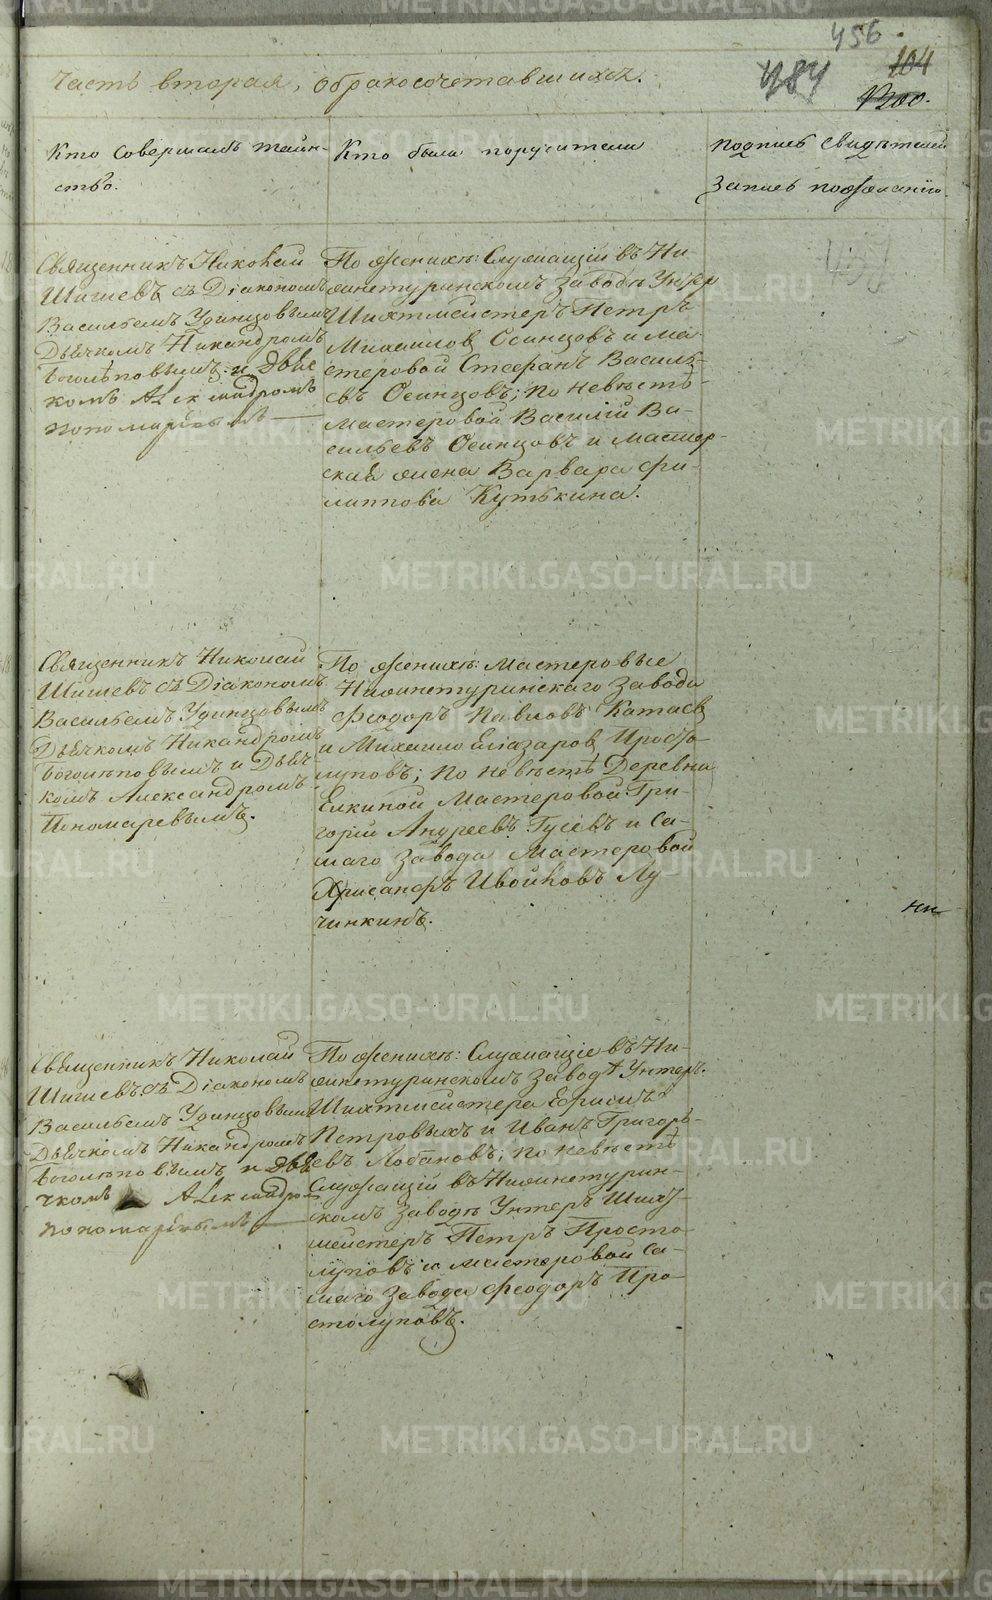 456.
484
104
1200.
Часть вторая, о бракосочетавшихся.
Кто совершалъ таин-
ство.
Кто были поручители
подпись свидѣтелей
записъ пожеланію.
Священникъ Николай
Шишевъ съ Діакономъ
Васильемъ Удинцовымъ
Дьячкомъ Никандромъ
Боголѣповымъ и дьяч
комъ Александромъ
пономаревымъ
По женихѣ: Служащій въ Ни-
жнетуринскомъ заводѣ Унтер
Шихтмейстеръ Петръ
Михаиловъ Осинцовъ и ма-
стеровой Стефанъ Василь-
евъ Осинцовъ; по невѣстѣ-
мастеровой Василій Ва-
сильевъ Осинцовъ и мастер-
ская жена Варвара Фи-
липпова Кутькина.
Священникъ Николай
Шишевъ съ Діакономъ
Васильемъ Удинцовымъ
Дьячкомъ Никандромъ
Боголѣповымъ и Дьяч-
комъ Александромъ
Пономаревымъ.
По женихѣ: Мастеровые
Нижнетуринскаго завода
Феодоръ Павловъ Катаев
и Михаило Елiазаров Просто-
луповъ; по невѣстѣ Деревни
Елкиной Мастеровой Гри-
горій Андреевъ Гусевъ и Са-
маго Завода Мастеровой
Хрисанфъ Ивойловъ Лу
чинкинъ.
нн
Священникъ Николай
Шишевъ съ Діакономъ
Васильемъ Удинцовымъ
Дьячкомъ Никандромъ
Боголѣповымъ и дья
чкомъ Александро-
пономаревымъ
По женихѣ: Служащіе въ Ни-
жнетуринскомъ заводѣ Унтеръ-
Шихтмейстера Ефимъ
Петровыхъ и Иванъ Григорь-
евъ Лобановъ; по невѣстѣ
Служащій въ Нижнетурин-
скомъ заводѣ Унтеръ Шихт-
мейстеръ Петръ Просто-
луповъ и мастеровой Са-
маго Завода Феодоръ Про-
столуповъ.
METRIKI.GASO-URAL.RU